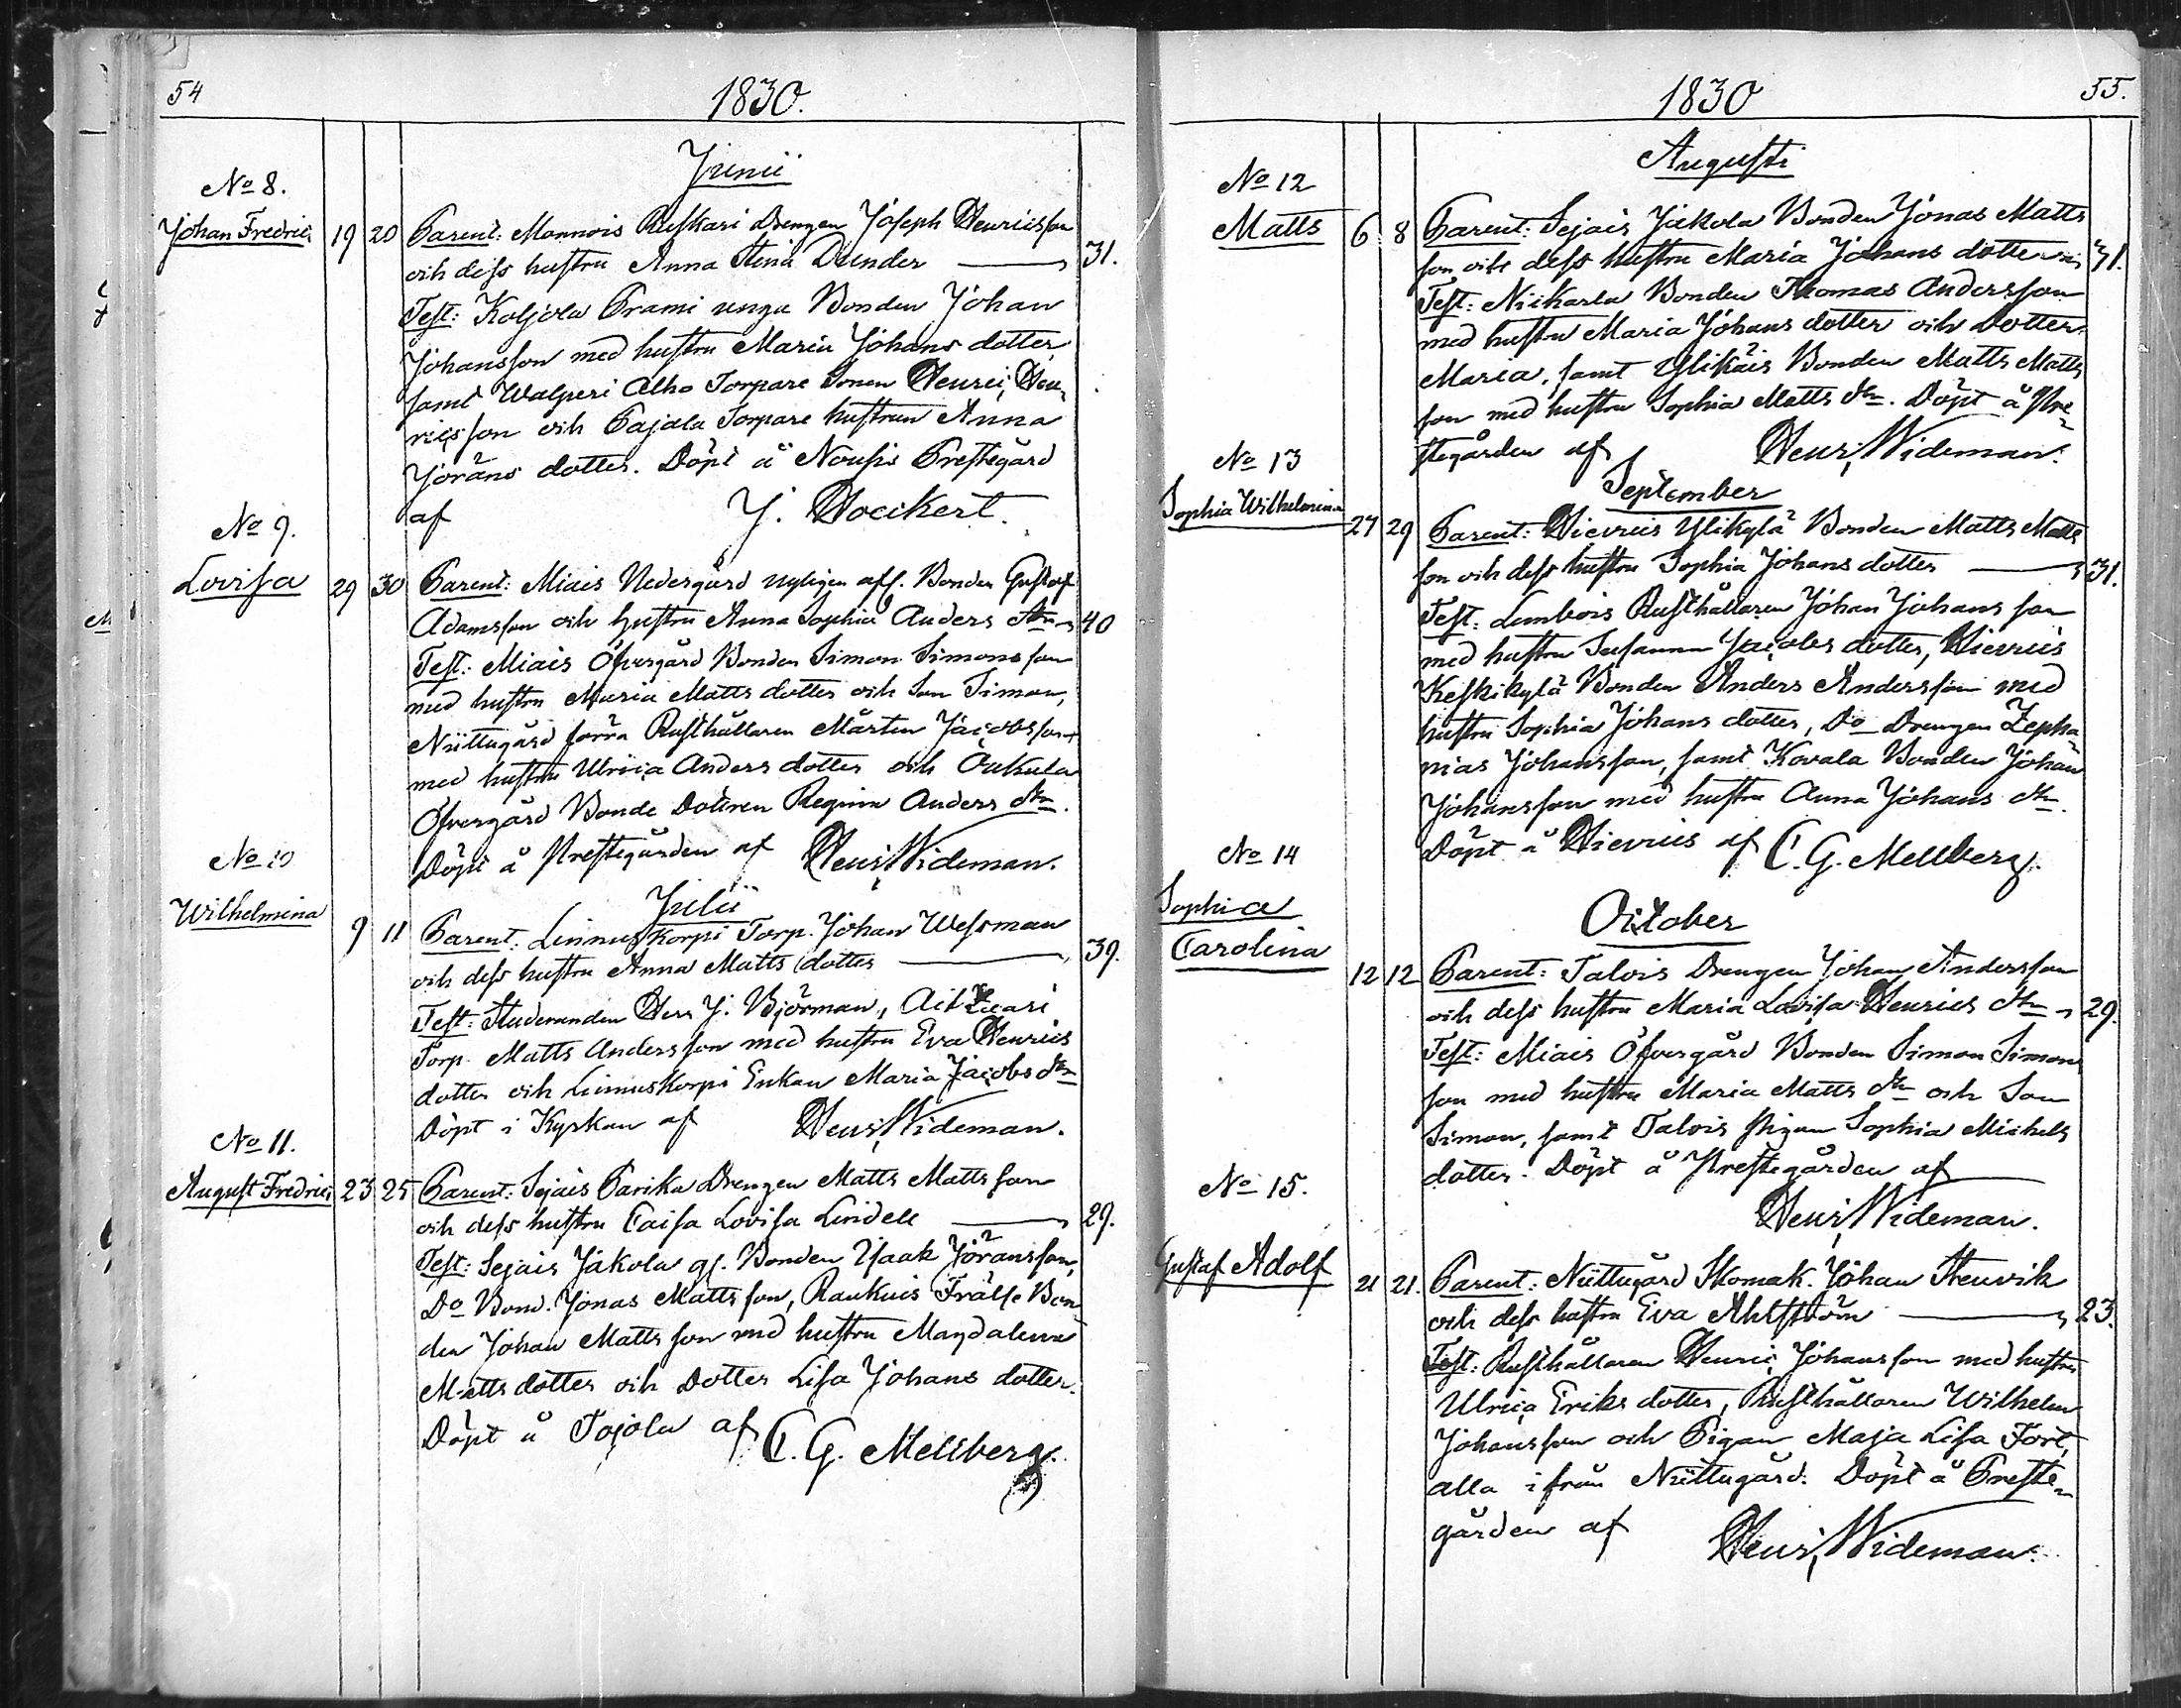 54
1830.
Junii
No 8.
Johan Fredric
19 20 Parent: Monnois Ruskari Drengen Joseph Henricsson
och dess hustru Anna Stina Dunder 31.
Test: Koljola Prami unga Bonden Johan
Johansson med hustru Maria Johans dotter
samt Walperi Alho Torpare Sonen Henric Hen-
ricsson och Pajala Torpare hustrun Anna
Jörans dotter. Döpt å Nousis Prestegård
af J. Hoeckert.
No 9.
Lovisa
29 30 Parent: Miais Nedergård nyligen afl. Bonden Gustaf
Adamsson och hustru Anna Sophia Anders dtr 40
Test: Miais Öfvergård Bonden Simon Simonsson
med hustru Maria Matts dotter och Son Simon,
Niittugård förra Rusthållaren Mårten Jacobsson
med hustru Ulrica Anders dotter och Oukula
Öfvergård Bonde Dottren Regina Anders dtr.
Döpt å Prestegården af Henr. Wideman.
No 10
Wilhelmina
Julii
9 11 Parent: Linnus Korpi Torp. Johan Wessman
och dess hustru Anna Matts dotter 39.
Test: Studeranden Herr J. Björman, Ait
Torp. Matts Andersson med hustru Eva Henrics
dotter och Linnuskorpi Enkan Maria Jacobs dtr
Döpt i Kyrkan af Henr. Wideman.
No 11.
August Fredric
23 25 Parent: Sejais Parika Drengen Matts Mattsson
och dess hustru Caisa Lovisa Lindell 29.
Test: Sejais Jäkola gl. Bonden Isaak Jöransson,
Do Bond. Jonas Mattsson, Raukuis Frälse Bon
den Johan Mattsson med hustru Magdalena
Matts dotter och Dotter Lisa Johans dotter.
Döpt å Tojola af C. G. Mellberg.
55.
1830
Augusti
No 12
Matts
6 8 Parent: Sejais Jäkola Bonden Jonas Matts
son och dess hustru Maria Johans dotter 31.
Test: Nickarla Bonden Thomas Andersson
med hustru Maria Johans dotter och Dotter
Maria, samt Ylikäis Bonden Matts Matts
son med hustru Sophia Matts dtr. Döpt å Pre-
stegården af Henr. Wideman.
No 13
Sophia Wilhelmina
September
27 29 Parent: Hieruis Ylikylä Bonden Matts Matts
son och dess hustru Sophia Johans dotter 31.
Test: Lembois Rusthållaren Johan Johansson
med hustru Susanna Jacobs dotter, Hieruis
Keskikylä Bonden Anders Andersson med
hustru Sophia Johans dotter, Do Drengen Zepha-
nias Johansson, samt Kovala Bonden Johan
Johansson med hustru Anna Johans dtr.
Döpt å Hieruis af C. G. Mellberg.
No 14
Sophia
Carolina
October
12 12 Parent: Talois Drengen Johan Andersson
och dess hustru Maria Lovisa Henrics dtr 29.
Test: Miais Öfvergård Bonden Simon Simons
son med hustru Maria Matts dtr och Son
Simon, samt Talois Pigan Sophia Michels
dotter. Döpt å Prestegården af
Henr. Wideman.
No 15.
Gustaf Adolf
21 21. Parent: Niittugård Skomak. Johan Stenvik
och dess hustru Eva Ahlström 23.
Test: Rusthållaren Henric Johansson med hustru
Ulrica Eriks dotter, Rusthållaren Wilhelm
Johansson och Pigan Maja Lisa Fort,
alla ifrån Niittugård. Döpt å Preste-
gården af Henr. Wideman.